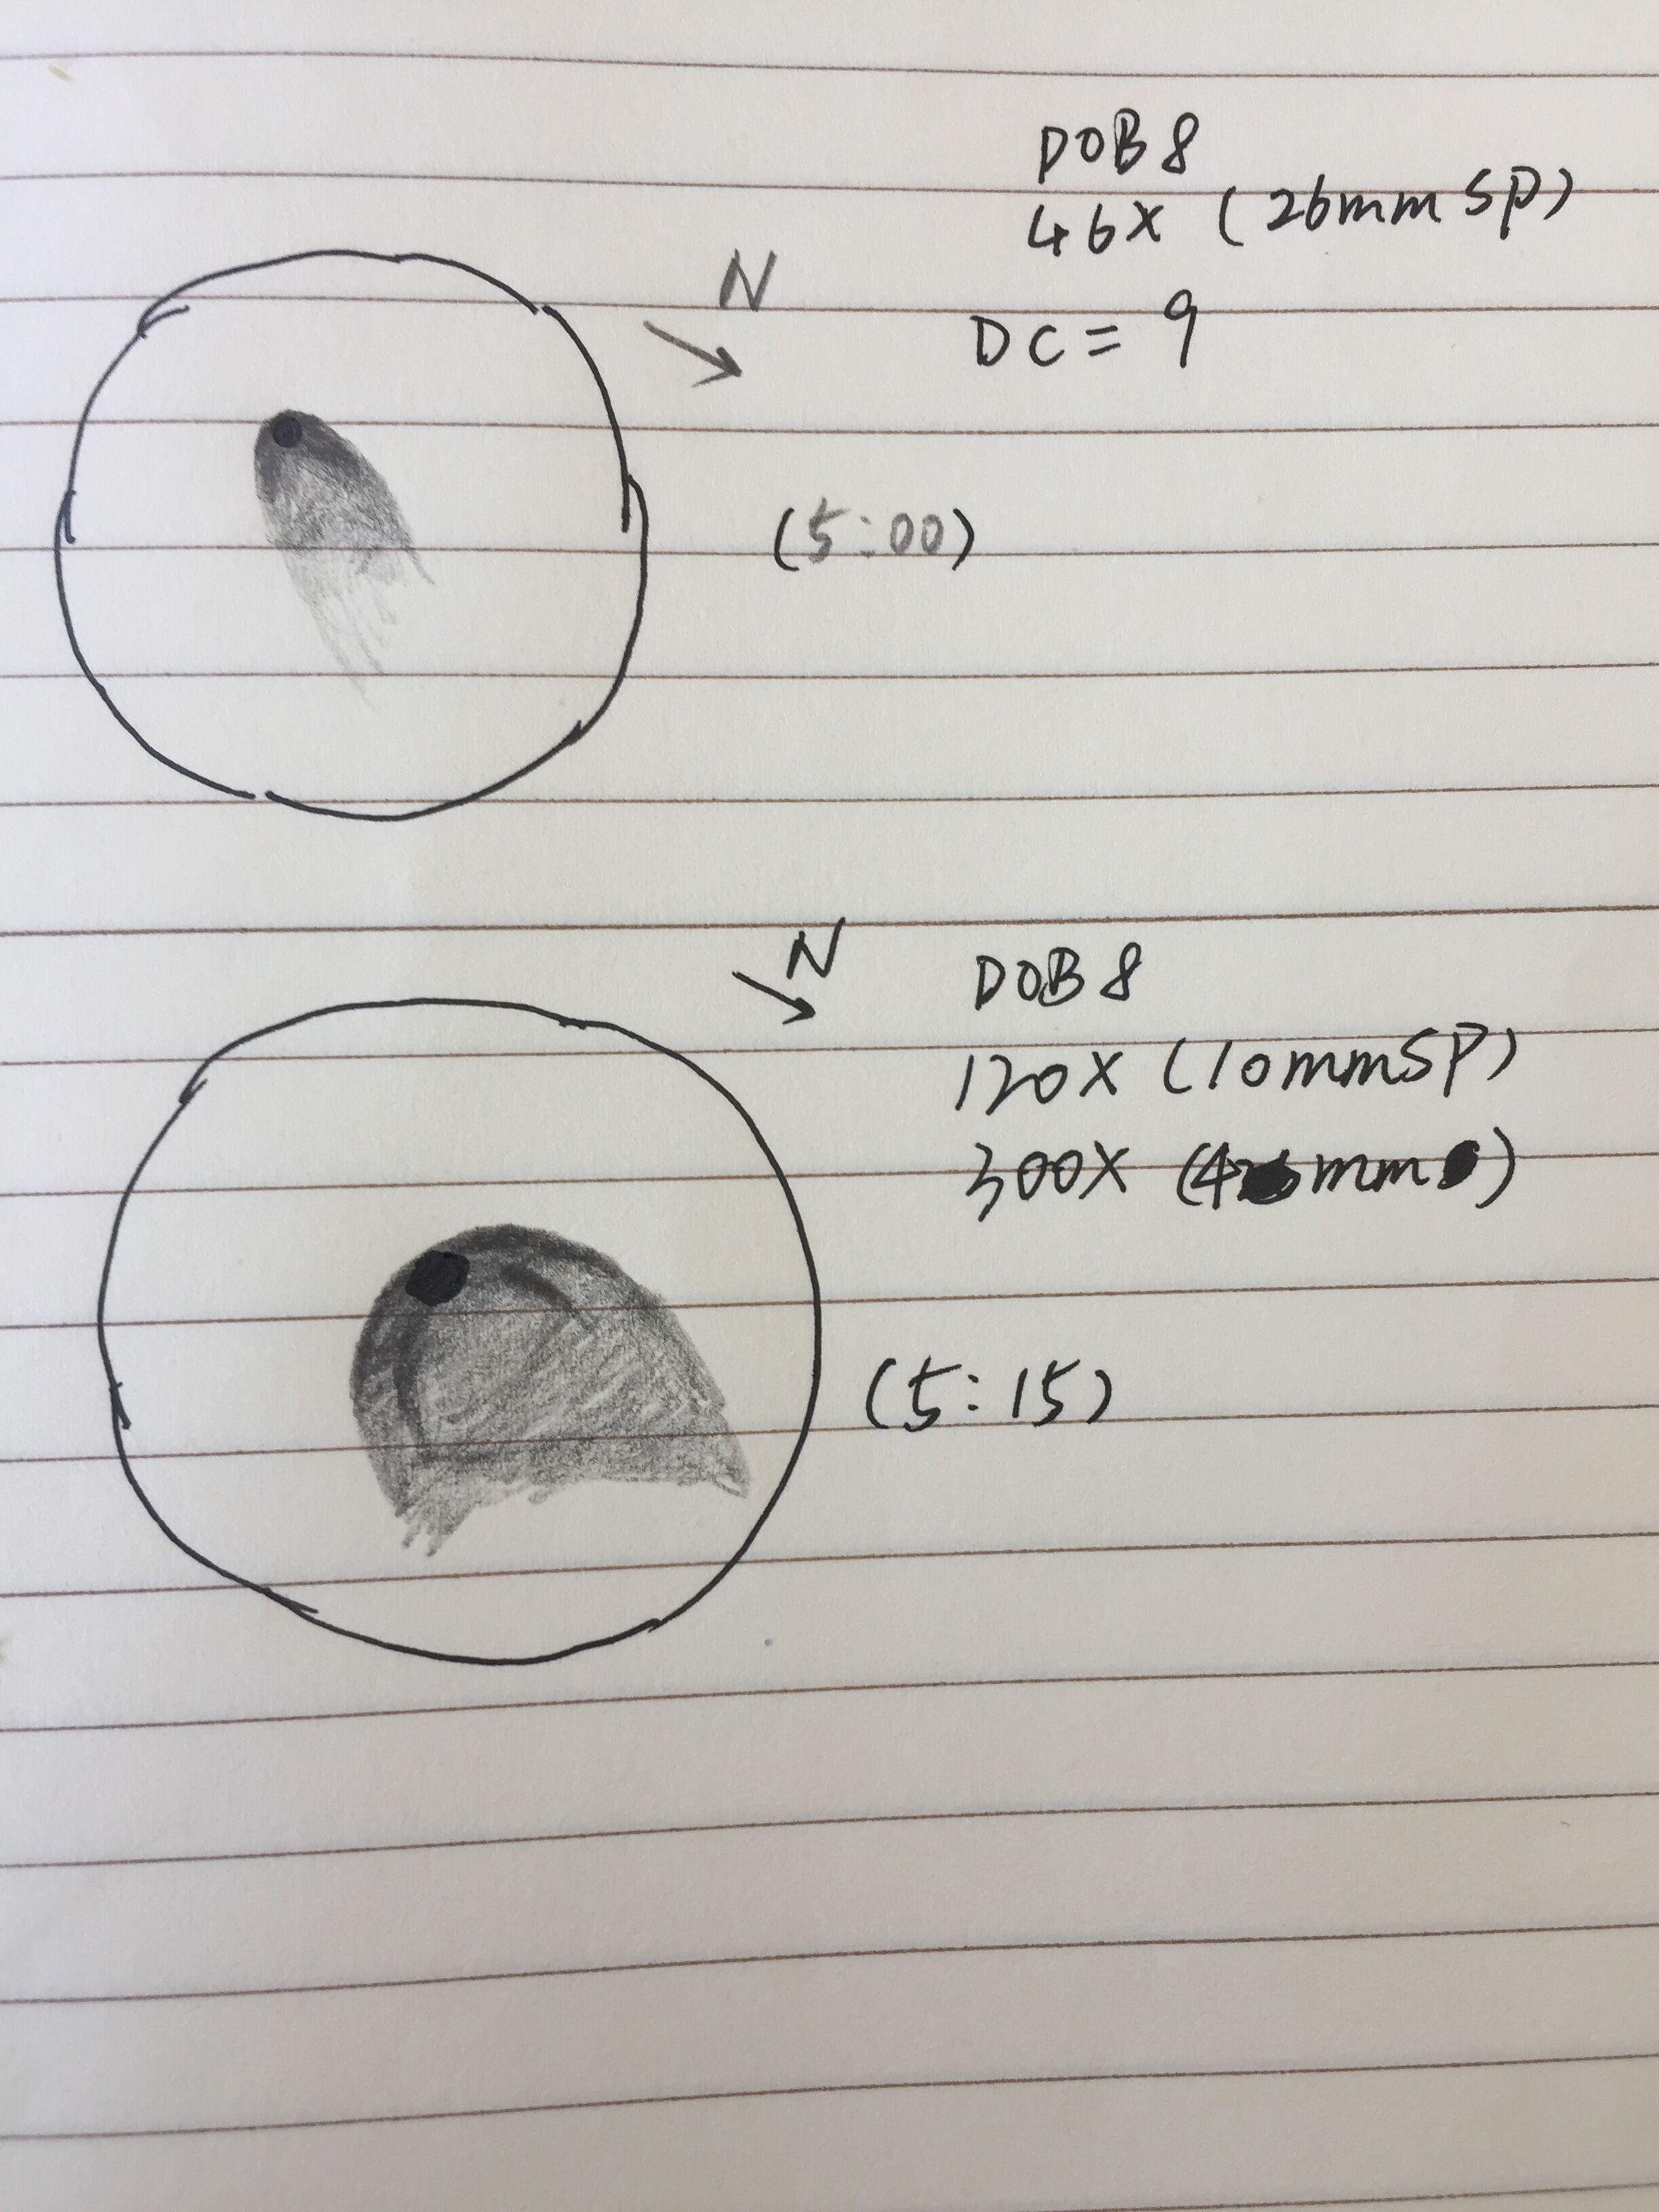 DOB 8
46X (26mm SP)
N
DC = 9
(5:00)
N
DOB 8
120X (10mmSP)
300X (4 mm )
(5:15)